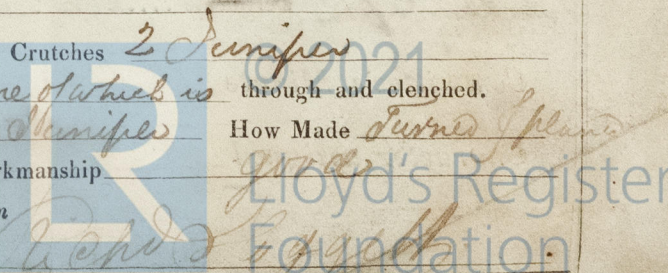 Crutches 2 Juniper
© 2021
ne of which is through and clenched.
Juniper How Made Turned & plane
rkmanship good
Lloyd's Register
n
Foundation
LR